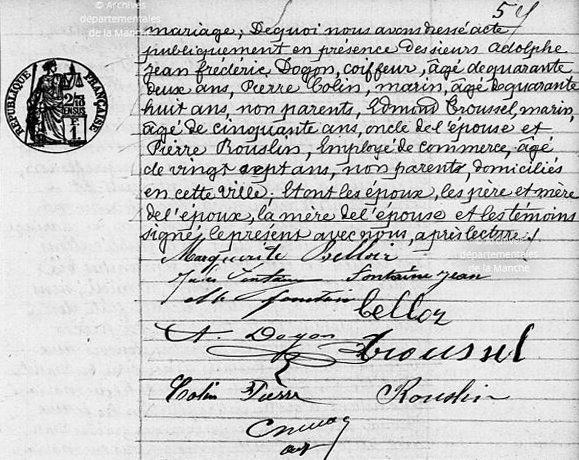 © Archives
départementales
de la Manche
57
mariage, De quoi nous avons dressé acte
publiquement en présence des sieurs Adolphe
Jean Frédéric Doyon, coiffeur, âgé de quarante
deux ans, Pierre Colin, marin, âgé de quarante
huit ans, non parents, Edmond Troussel, marin,
âgé de cinquante ans, oncle de l'épouse et
Pierre Rouslin, Employé de commerce, âgé
de vingt sept ans, non parents, domiciliés
en cette ville; Et ont les époux, les père et mère
de l'époux, la mère de l'épouse et les témoins
signé le présent avec nous, après lecture.
RÉPUBLIQUE FRANÇAISE
© Archives
départementales
de la Manche
Marguerite
Jules Fontaine Fontaine Jean
A. Doyon Troussel
Colin Pierre Rouslin